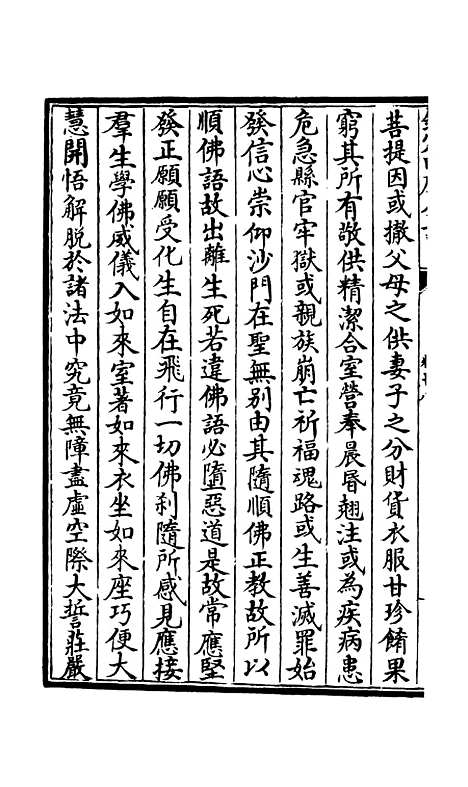 菩提因或撤父母之供妻子之分財貨衣服甘珍餚果
窮其所有敬供精潔合室營奉晨昏翹注或為疾病患
危急縣官牢獄或親族崩亡祈福魂路或生善滅罪始
發信心崇仰沙門在聖無别由其隨順佛正教故所以
順佛語故出離生死若違佛語必墮惡道是故常應堅
發正願願受化生自在飛行一切佛刹隨所感見應接
羣生學佛威儀入如來室著如來衣坐如來座巧便大
慧開悟解脱於諸法中究竟無障盡虛空際大誓莊嚴